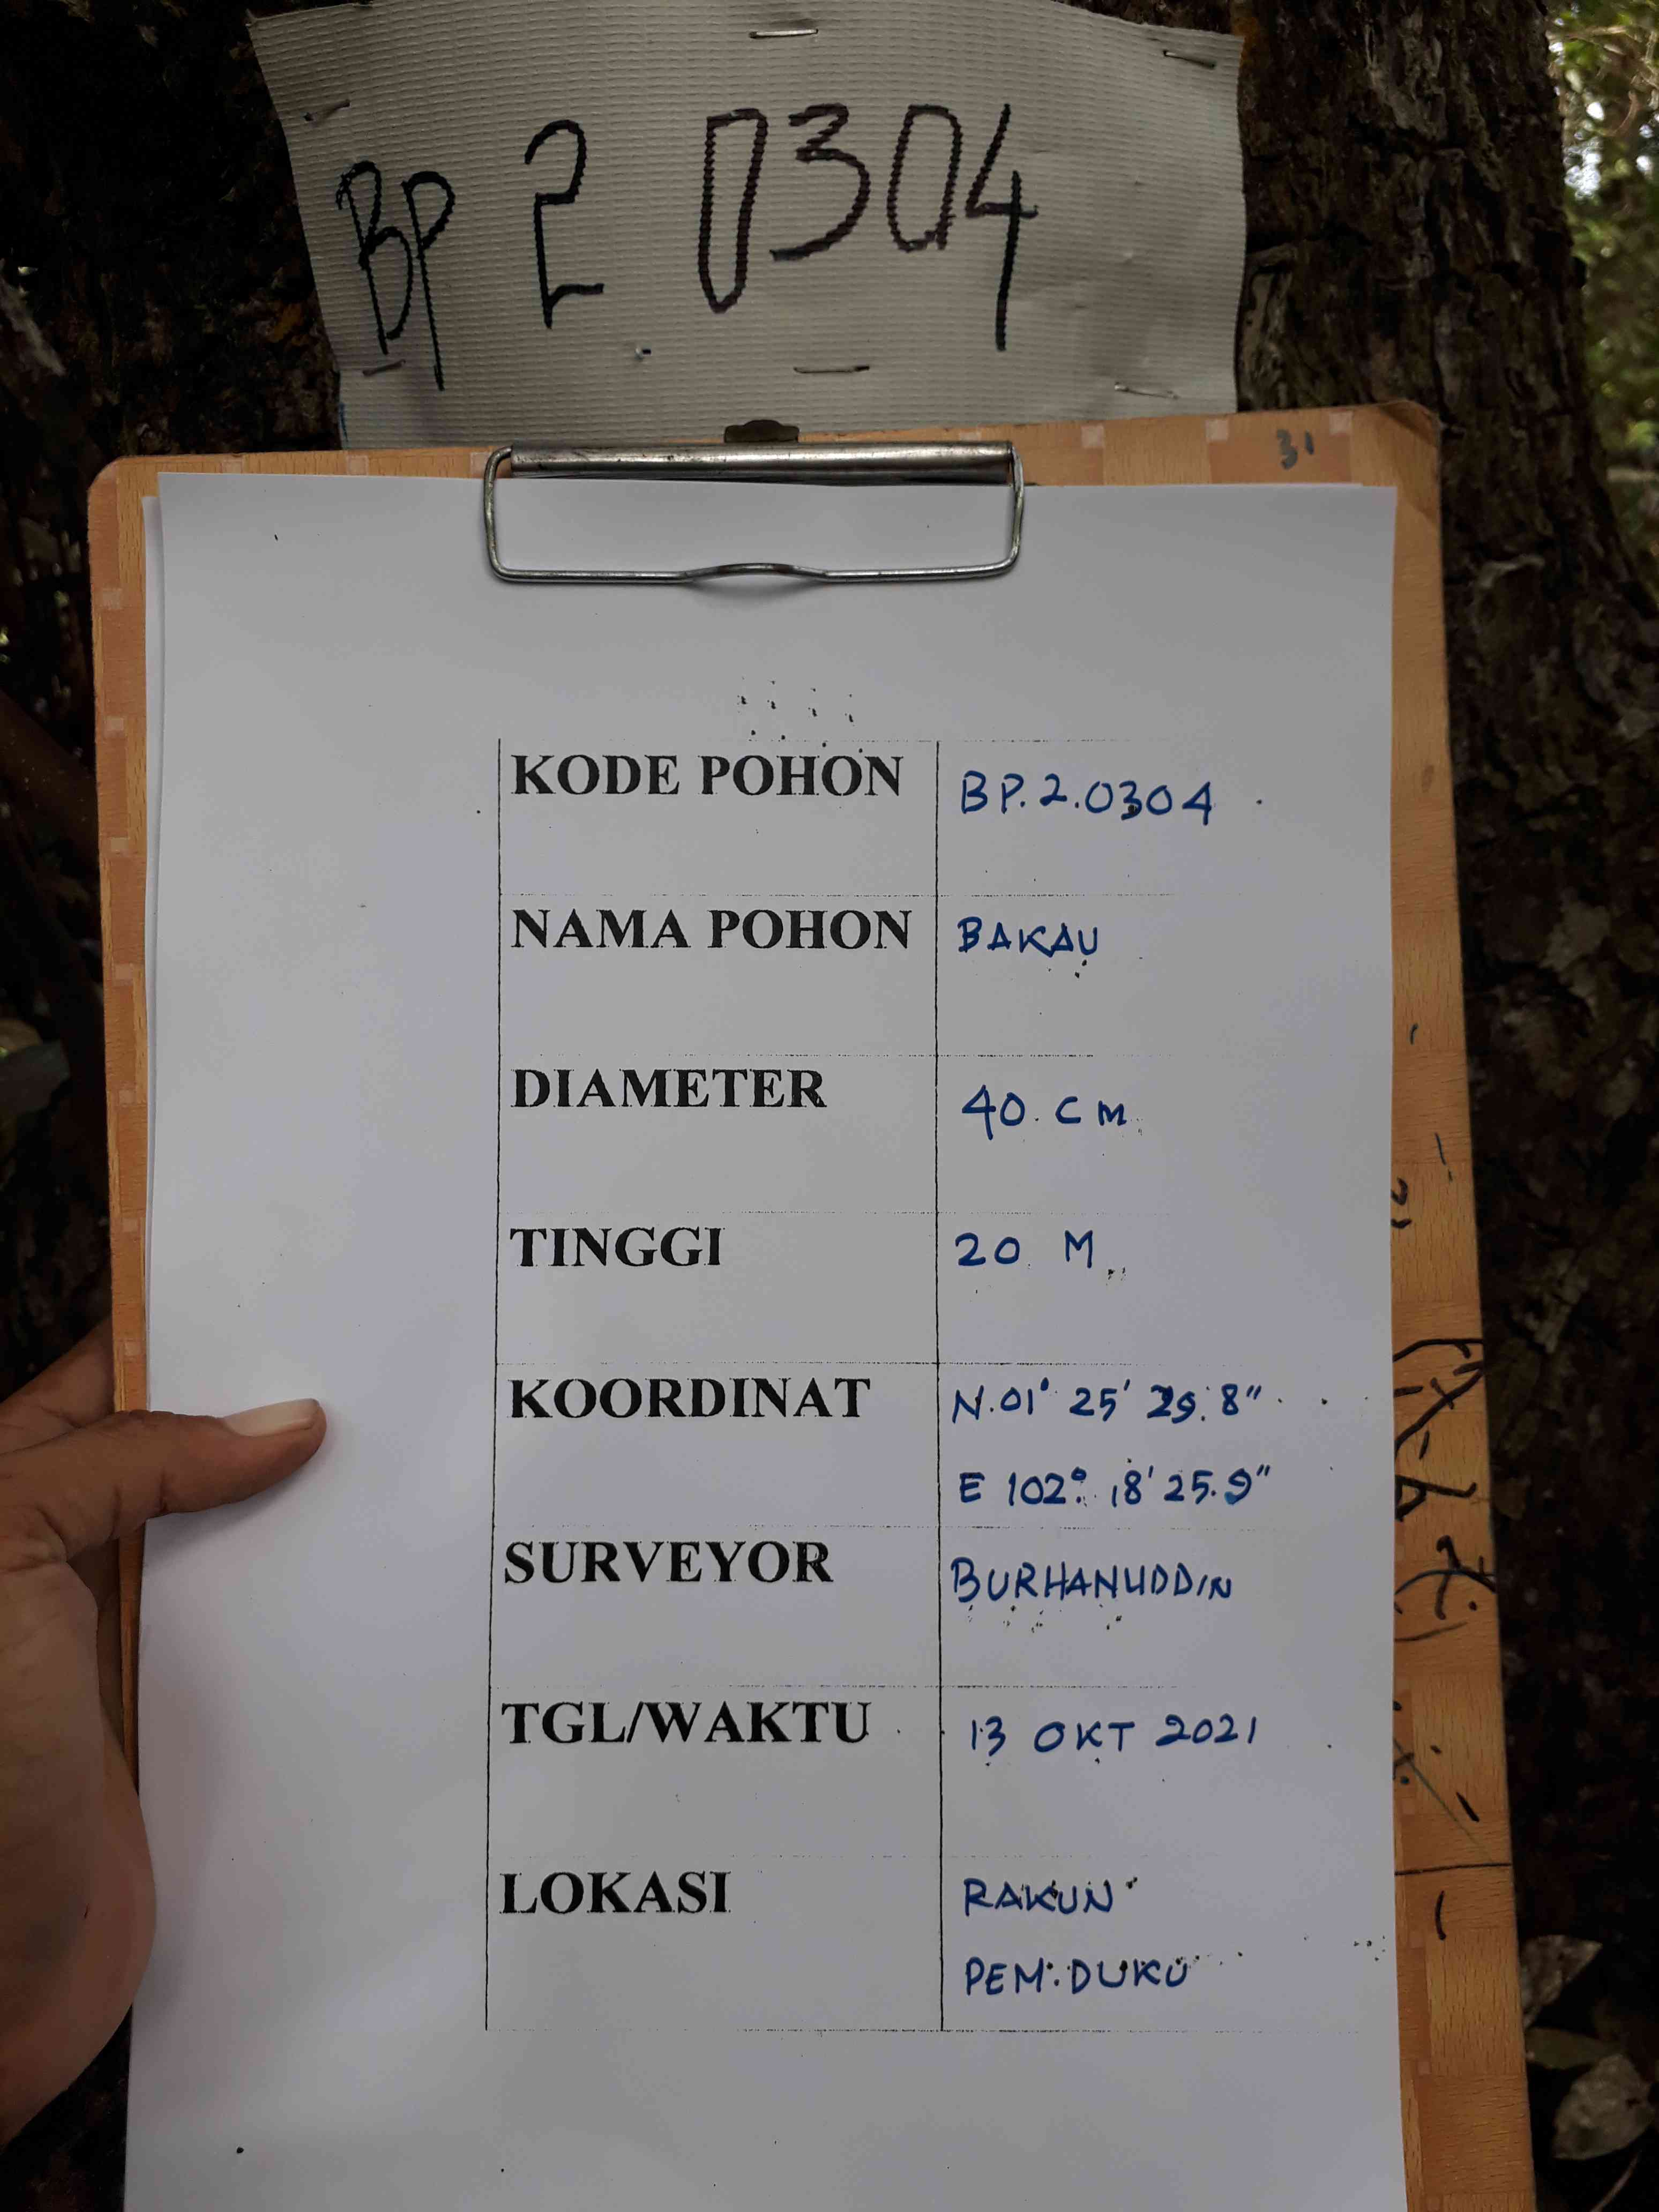 BP 2 0304
31
KODE POHON BP.2.0304
NAMA POHON BAKAU
DIAMETER 40 CM
TINGGI 20 M
KOORDINAT N.01° 25' 29.8"
E 102° 18' 25.9"
SURVEYOR BURHANUDDIN
TGL/WAKTU 13 OKT 2021
LOKASI RAKUN
PEM.DUKU